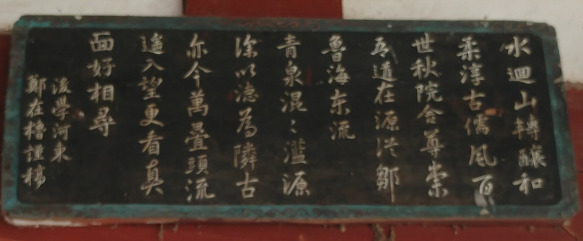 水迴山轉釀和
柔淳古儒風百
世秋院合尊崇
吾道在源從鄒
魯海东流
青泉混々溢源
深以德為隣古
亦今萬叠頭流
遙入望更看真
面好相尋
後學河東
鄭在櫓謹稿